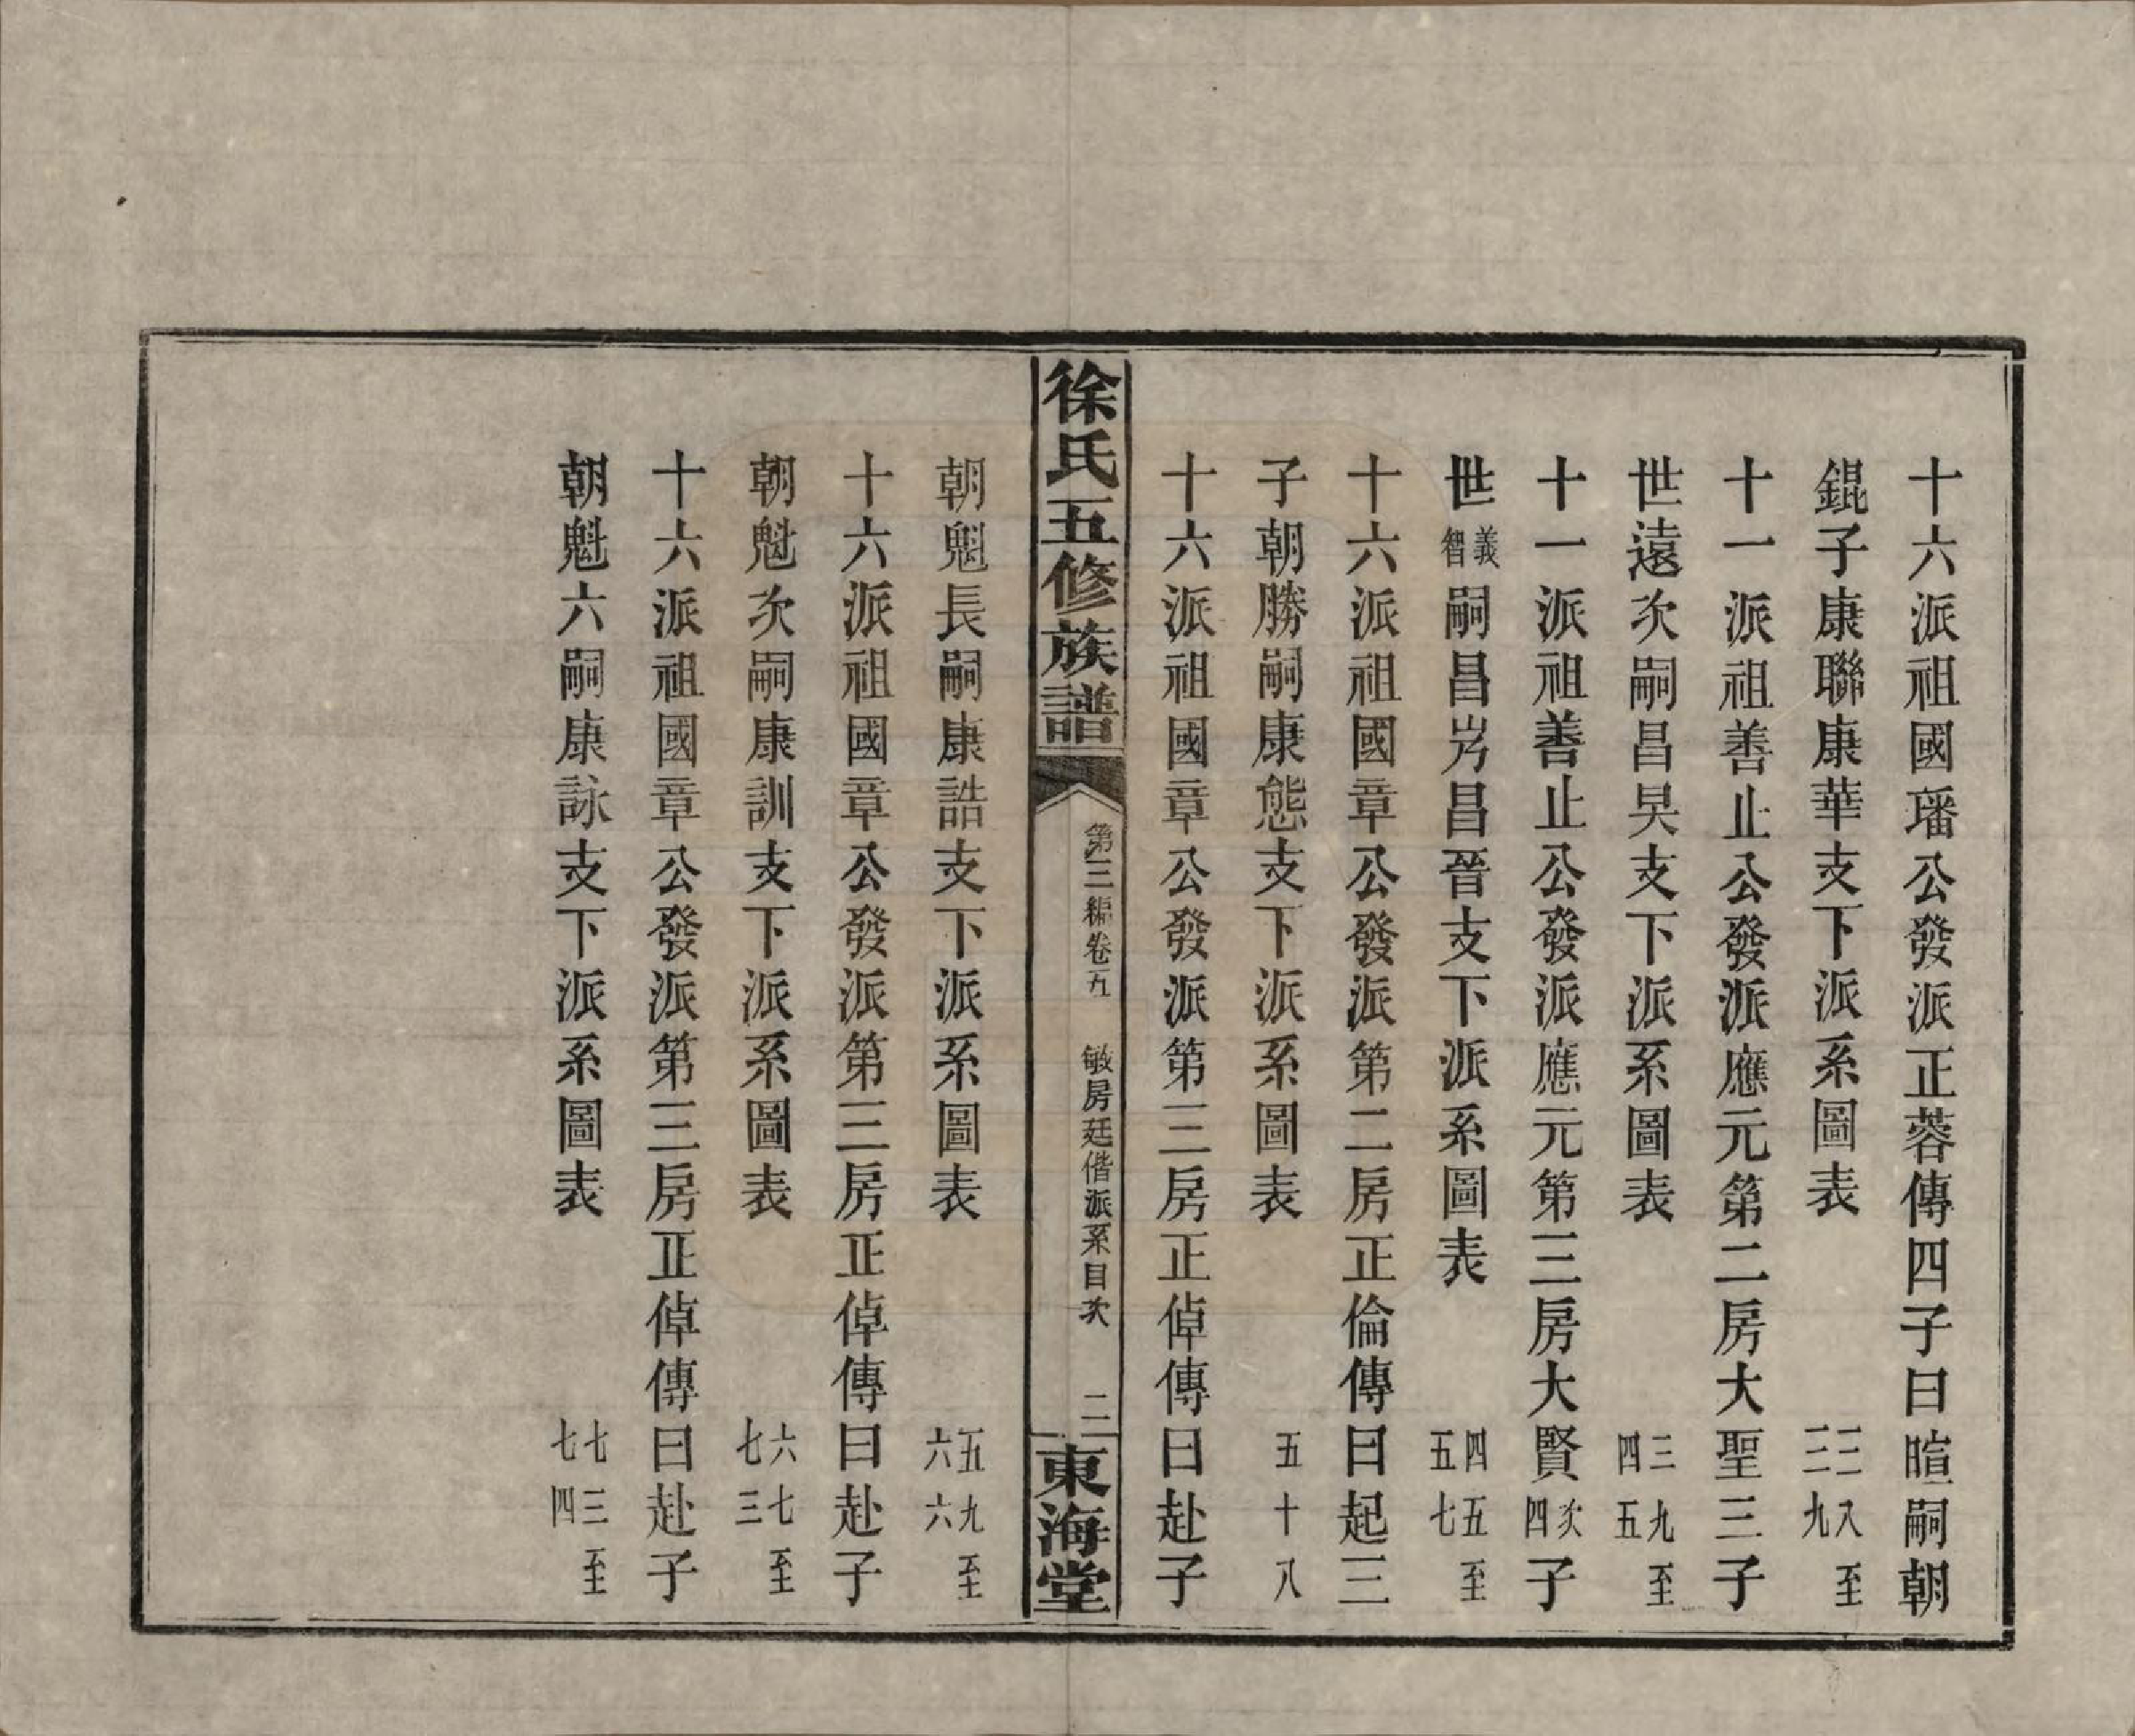 十六派祖國璠公發派正蓉傳四子曰暄嗣朝
錕子康聯康華支下派系圖表 二八至三九
十一派祖善止公發派應元第二房大聖三子
世遠次嗣昌昊支下派系圖表 三九至四五
十一派祖善止公發派應元第三房大賢次四子
世義智嗣昌岃昌晉支下派系圖表 四五至五七
十六派祖國章公發派第二房正倫傳曰起三
子朝勝嗣康態支下派系圖表 五十八
十六派祖國章公發派第三房正倬傳曰赴子
徐氏五修族譜 第三編卷五九 敏房廷偕派系目次 二 東海堂
朝魁長嗣康誥支下派系圖表 五九至六六
十六派祖國章公發派第三房正倬傳曰赴子
朝魁次嗣康訓支下派系圖表 六七至七三
十六派祖國章公發派第三房正倬傳曰赴子
朝魁六嗣康詠支下派系圖表 七三至七四